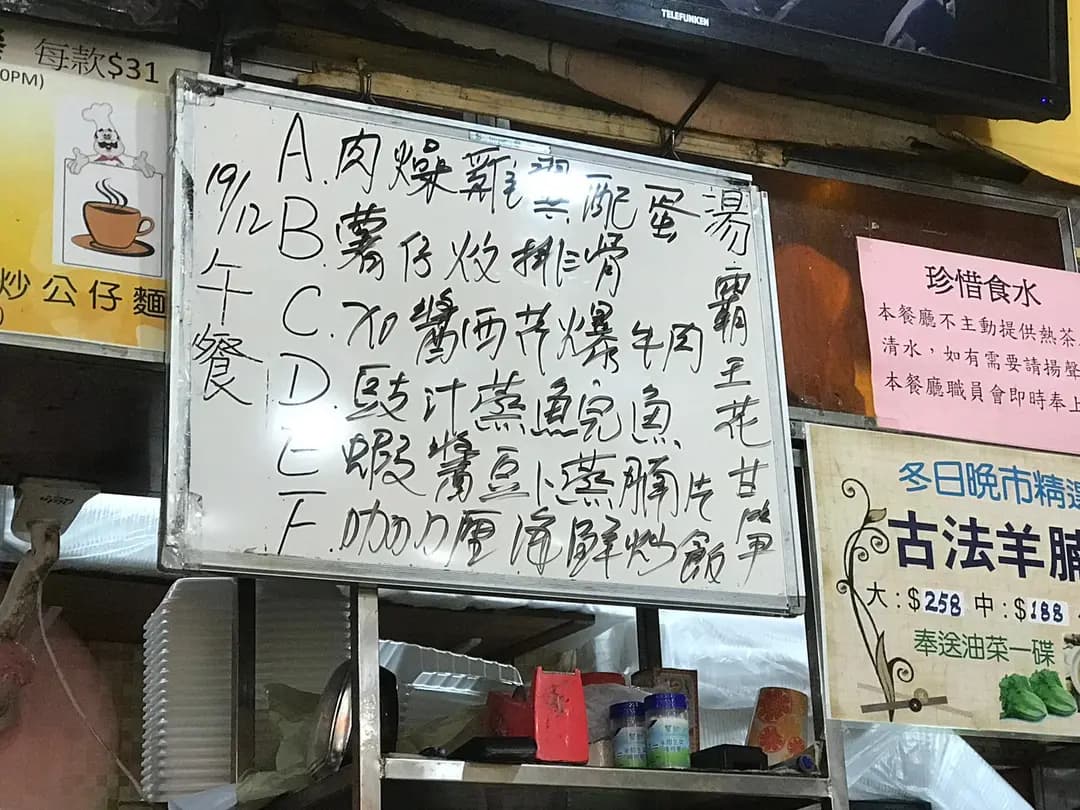 TELEFUNKEN
每款$31
0PM)
炒公仔麵
19/12 午餐
A. 肉燥雞翼配蛋
B. 薯仔炆排骨
C. 沙醬西芹爆牛肉
D. 豉汁蒸鱼完鱼
E 蝦醬豆卜蒸腩片
F. 咖喱海鮮炒飯
湯 霸王花甘筍
珍惜食水
本餐廳不主動提供熱茶
清水，如有需要請揚聲
本餐廳職員會即時奉上
冬日晚市精選
古法羊腩
大:$258 中:$188
奉送油菜一碟